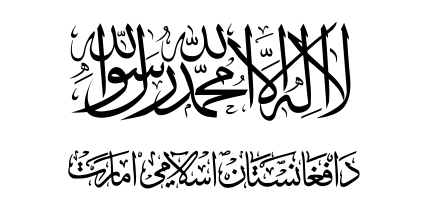 لا إله إلا الله محمد رسول الله
د افغانستان اسلامي امارت